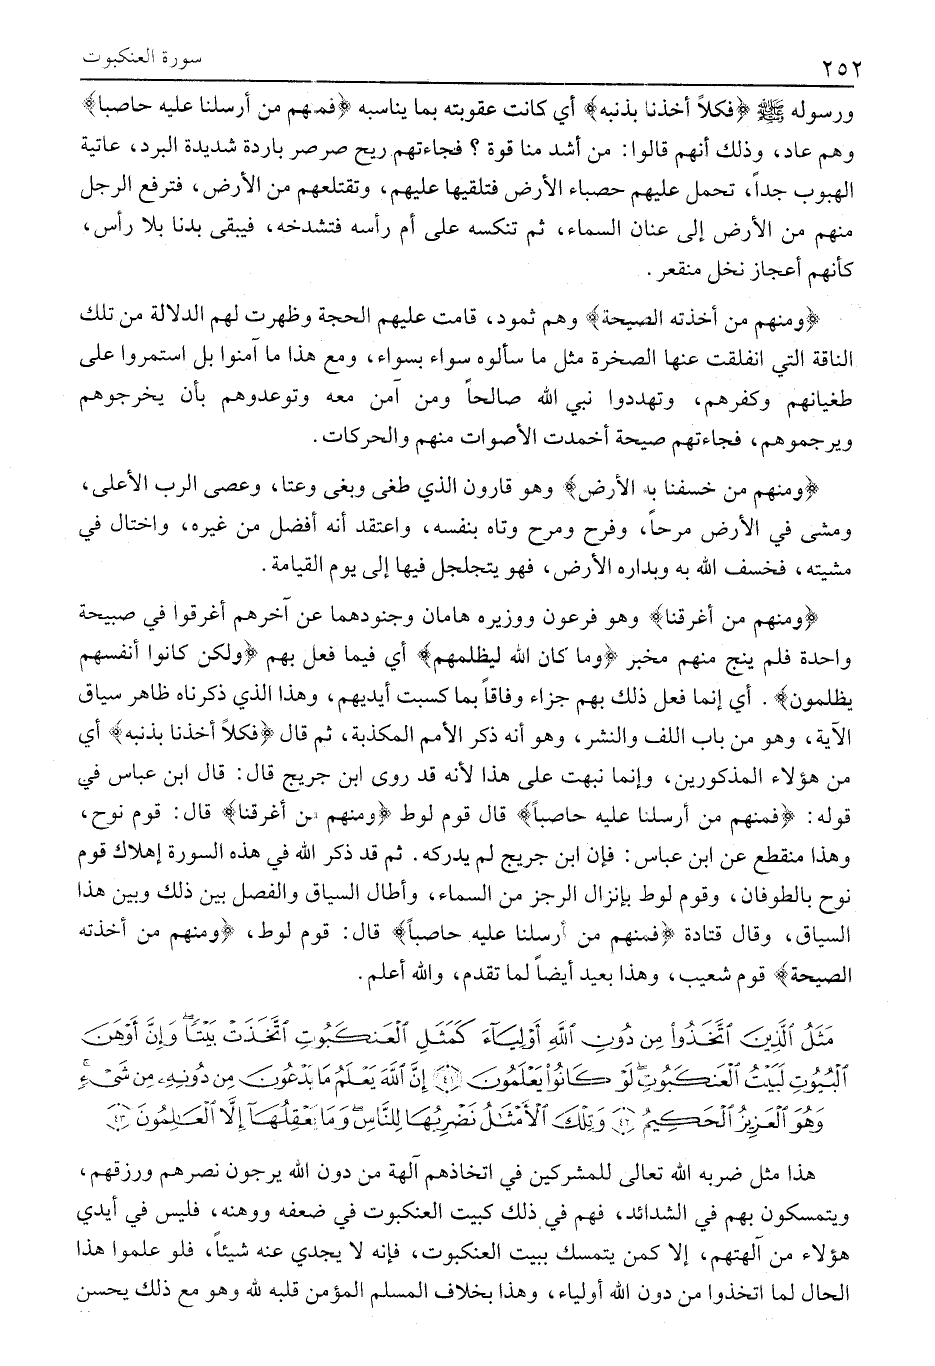 ٢٥٢ سورة العنكبوت
ورسوله ﷺ ﴿فكلاً أخذنا بذنبه﴾ أي كانت عقوبته بما يناسبه ﴿فمنهم من أرسلنا عليه حاصبا﴾
وهم عاد، وذلك أنهم قالوا: من أشد منا قوة ؟ فجاءتهم ريح صرصر باردة شديدة البرد، عاتية
الهبوب جداً، تحمل عليهم حصباء الأرض فتلقيها عليهم، وتقتلعهم من الأرض، فترفع الرجل
منهم من الأرض إلى عنان السماء، ثم تنكسه على أم رأسه فتشدخه، فيبقى بدنا بلا رأس،
كأنهم أعجاز نخل منقعر.
﴿ومنهم من أخذته الصيحة﴾ وهم ثمود، قامت عليهم الحجة وظهرت لهم الدلالة من تلك
الناقة التي انفلقت عنها الصخرة مثل ما سألوه سواء بسواء، ومع هذا ما آمنوا بل استمروا على
طغيانهم وكفرهم، وتهددوا نبي الله صالحاً ومن آمن معه وتوعدوهم بأن يخرجوهم
ويرجموهم، فجاءتهم صيحة أخمدت الأصوات منهم والحركات.
﴿ومنهم من خسفنا به الأرض﴾ وهو قارون الذي طغى وبغى وعتا، وعصى الرب الأعلى،
ومشى في الأرض مرحاً، وفرح ومرح وتاه بنفسه، واعتقد أنه أفضل من غيره، واختال في
مشيته، فخسف الله به وبداره الأرض، فهو يتجلجل فيها إلى يوم القيامة.
﴿ومنهم من أغرقنا﴾ وهو فرعون ووزيره هامان وجنودهما عن آخرهم أغرقوا في صبيحة
واحدة فلم ينج منهم مخبر ﴿وما كان الله ليظلمهم﴾ أي فيما فعل بهم ﴿ولكن كانوا أنفسهم
يظلمون﴾ . أي إنما فعل ذلك بهم جزاء وفاقاً بما كسبت أيديهم، وهذا الذي ذكرناه ظاهر سياق
الآية، وهو من باب اللف والنشر، وهو أنه ذكر الأمم المكذبة، ثم قال ﴿فكلاً أخذنا بذنبه﴾ أي
من هؤلاء المذكورين، وإنما نبهت على هذا لأنه قد روى ابن جريج قال: قال ابن عباس في
قوله: ﴿فمنهم من أرسلنا عليه حاصباً﴾ قال قوم لوط ﴿ومنهم من أغرقنا﴾ قال: قوم نوح،
وهذا منقطع عن ابن عباس: فإن ابن جريج لم يدركه. ثم قد ذكر الله في هذه السورة إهلاك قوم
نوح بالطوفان، وقوم لوط بإنزال الرجز من السماء، وأطال السياق والفصل بين ذلك وبين هذا
السياق، وقال قتادة ﴿فمنهم من أرسلنا عليه حاصباً﴾ قال: قوم لوط، ﴿ومنهم من أخذته
الصيحة﴾ قوم شعيب، وهذا بعيد أيضاً لما تقدم، والله أعلم.
مَثَلُ ٱلَّذِينَ ٱتَّخَذُوا۟ مِن دُونِ ٱللَّهِ أَوْلِيَآءَ كَمَثَلِ ٱلْعَنكَبُوتِ ٱتَّخَذَتْ بَيْتًۭا ۖ وَإِنَّ أَوْهَنَ
ٱلْبُيُوتِ لَبَيْتُ ٱلْعَنكَبُوتِ ۖ لَوْ كَانُوا۟ يَعْلَمُونَ ﴿٤١﴾ إِنَّ ٱللَّهَ يَعْلَمُ مَا يَدْعُونَ مِن دُونِهِۦ مِن شَىْءٍۢ ۚ
وَهُوَ ٱلْعَزِيزُ ٱلْحَكِيمُ ﴿٤٢﴾ وَتِلْكَ ٱلْأَمْثَـٰلُ نَضْرِبُهَا لِلنَّاسِ ۖ وَمَا يَعْقِلُهَآ إِلَّا ٱلْعَـٰلِمُونَ ﴿٤٣﴾
هذا مثل ضربه الله تعالى للمشركين في اتخاذهم آلهة من دون الله يرجون نصرهم ورزقهم،
ويتمسكون بهم في الشدائد، فهم في ذلك كبيت العنكبوت في ضعفه ووهنه، فليس في أيدي
هؤلاء من آلهتهم، إلا كمن يتمسك ببيت العنكبوت، فإنه لا يجدي عنه شيئاً، فلو علموا هذا
الحال لما اتخذوا من دون الله أولياء، وهذا بخلاف المسلم المؤمن قلبه لله وهو مع ذلك يحسن